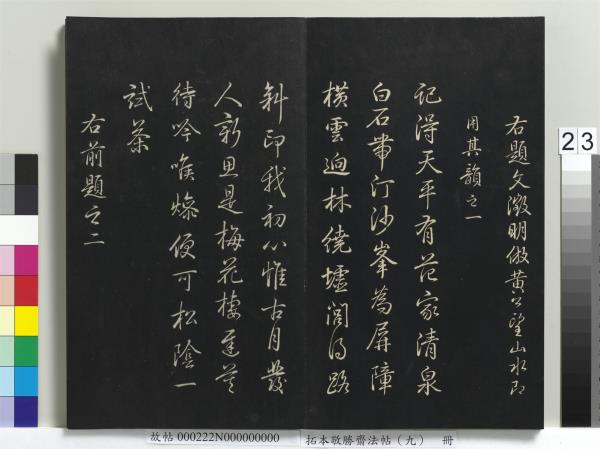 右題文徵明倣黃公望山水即
用其韻之一
記得天平有范家清泉
白石帶汀沙峯為屏障
橫雲迥林繞墟閭得路
斜印我初心惟古月發
人新思是梅花棲遲莫
待吟喉燥便可松陰一
試茶
右前題之二
23
故帖 000222N000000000
拓本敬勝齋法帖(九) 冊